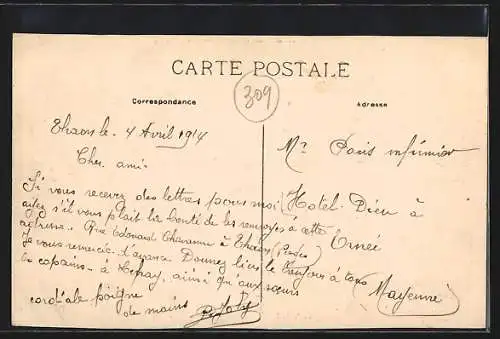 CARTE POSTALE
309
Correspondance
Adresse
le 4 Avril 1914
Cher ami.
Si vous recevez des lettres pour moi
ayez s'il vous plait la bonté de les renvoyer à cette
adresse. Rue Edouard à
Je vous remercie d'avance Donnez le bonjour à tous
les copains à ainsi qu'aux sœurs
cordiale poigne
de mains
Mr infirmier
Hotel-Dieu à
Ernée
Mayenne